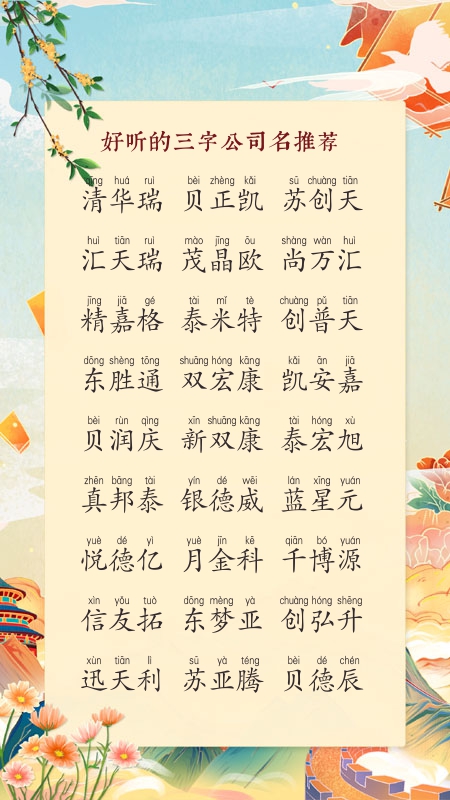 好听的三字公司名推荐
qīng huá ruì bèi zhèng kǎi sū chuàng tiān
清华瑞 贝正凯 苏创天
huì tiān ruì mào jīng ōu shàng wàn huì
汇天瑞 茂晶欧 尚万汇
jīng jiā gé tài mǐ tè chuàng pǔ tiān
精嘉格 泰米特 创普天
dōng shèng tōng shuāng hóng kāng kǎi ān jiā
东胜通 双宏康 凯安嘉
bèi rùn qìng xīn shuāng kāng tài hóng xù
贝润庆 新双康 泰宏旭
zhēn bāng tài yín dé wēi lán xīng yuán
真邦泰 银德威 蓝星元
yuè dé yì yuè jīn kē qiān bó yuán
悦德亿 月金科 千博源
xìn yǒu tuò dōng mèng yà chuàng hóng shēng
信友拓 东梦亚 创弘升
xùn tiān lì sū yà téng bèi dé chén
迅天利 苏亚腾 贝德辰